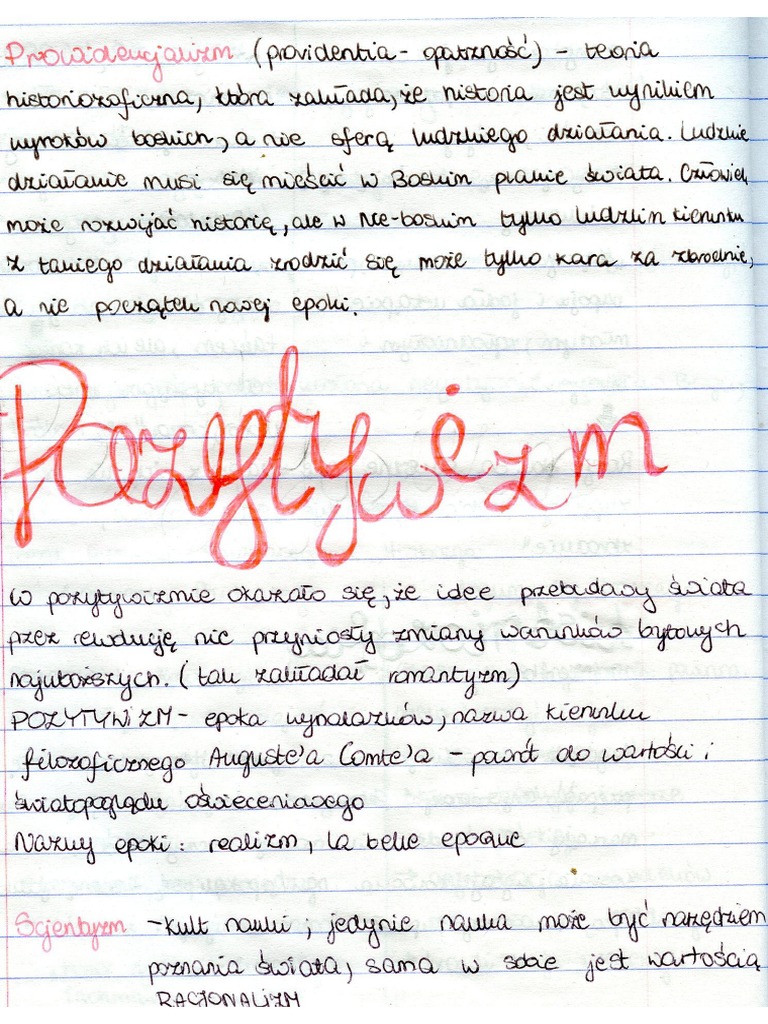 Prowidencjalizm (providentia - opatrzność) - teoria
historiozoficzna, która zakłada, że historia jest wynikiem
wyroków boskich, a nie sferą ludzkiego działania. Ludzkie
działanie musi się mieścić w Boskim planie świata. Człowiek
może rozwijać historię, ale w nie-boskim tylko ludzkim kierunku
z takiego działania zrodzić się może tylko kara za zbrodnie,
a nie początek nowej epoki.
Pozytywizm
W pozytywizmie okazało się, że idee przebudowy świata
przez rewolucję nie przyniosły zmiany warunków bytowych
najuboższych. (tak zakładał romantyzm)
POZYTYWIZM - epoka wynalazków, nazwa kierunku
filozoficznego Auguste'a Comte'a - powrót do wartości i
światopoglądu oświeceniowego
Nazwy epoki: realizm, la belle epoque
Scjentyzm - kult nauki, jedynie nauka może być narzędziem
poznania świata, sama w sobie jest wartością
RACJONALIZM